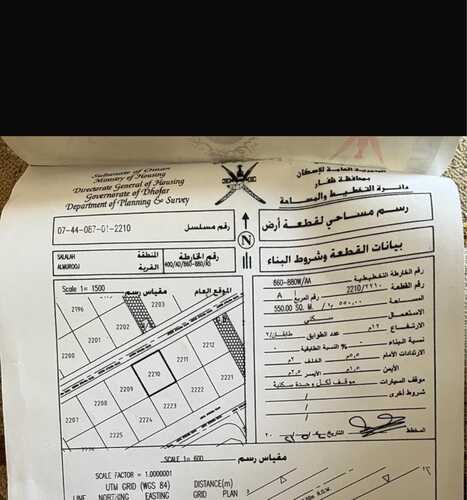 Sultanate of Oman
Ministry of Housing
Directorate General of Housing
Governorate of Dhofar
Department of Planning & Survey
المديرية العامة للإسكان
بمحافظة ظفار
دائرة التخطيط والمساحة
07-44-087-01-2210
رقم مسلسل
رسم مساحي لقطعة أرض
SALALAH
المنطقة
ALMUROOJ
القرية
رقم الخارطة
400/AD/860-880/A5
N
بيانات القطعة وشروط البناء
Scale 1= 1500
مقياس رسم
الموقع العام
رقم الخارطة التخطيطية
860-880W/AA
رقم القطعة
2210/٢٢١٠
رقم المربع
A
المساحة
550.00 SQ. M./
الاستعمال
سكني
الارتفاع
١٢م
عدد الطوابق
طابقان/٢
نسبة البناء
% النسبة الطابقية
الارتدادات الأمام
٥م
الخلف
٣م
الأيمن
الأيسر
موقف السيارات
موقف لكل وحدة سكنية
شروط أخرى
المخطط
التاريخ
2196
2203
2200
2201
2211
2212
2210
2207
2209
2223
2208
2224
2222
2225
2221
SCALE 1= 600
مقياس رسم
SCALE FACTOR = 1.0000001
UTM GRID (WGS 84)
DISTANCE(m)
LINE
NORTHING
EASTING
GRID
PLAN